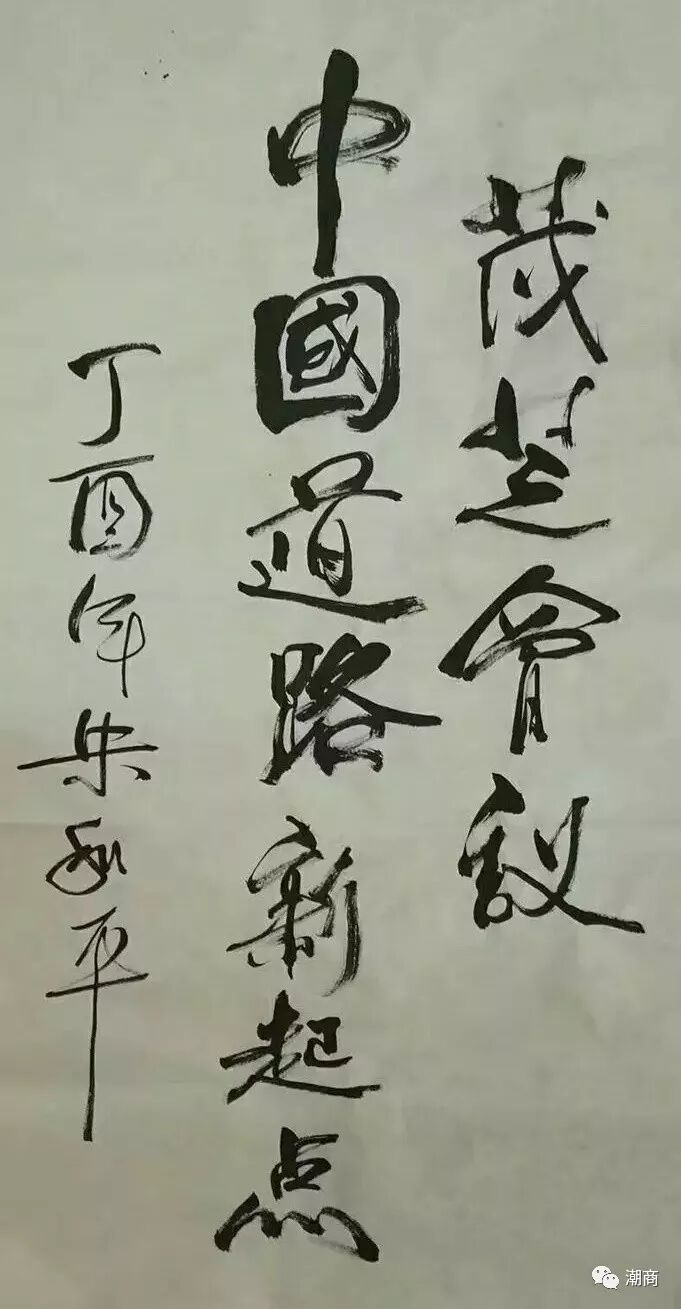 茂芝會议
中國道路新起点
丁酉年朱和平
潮商